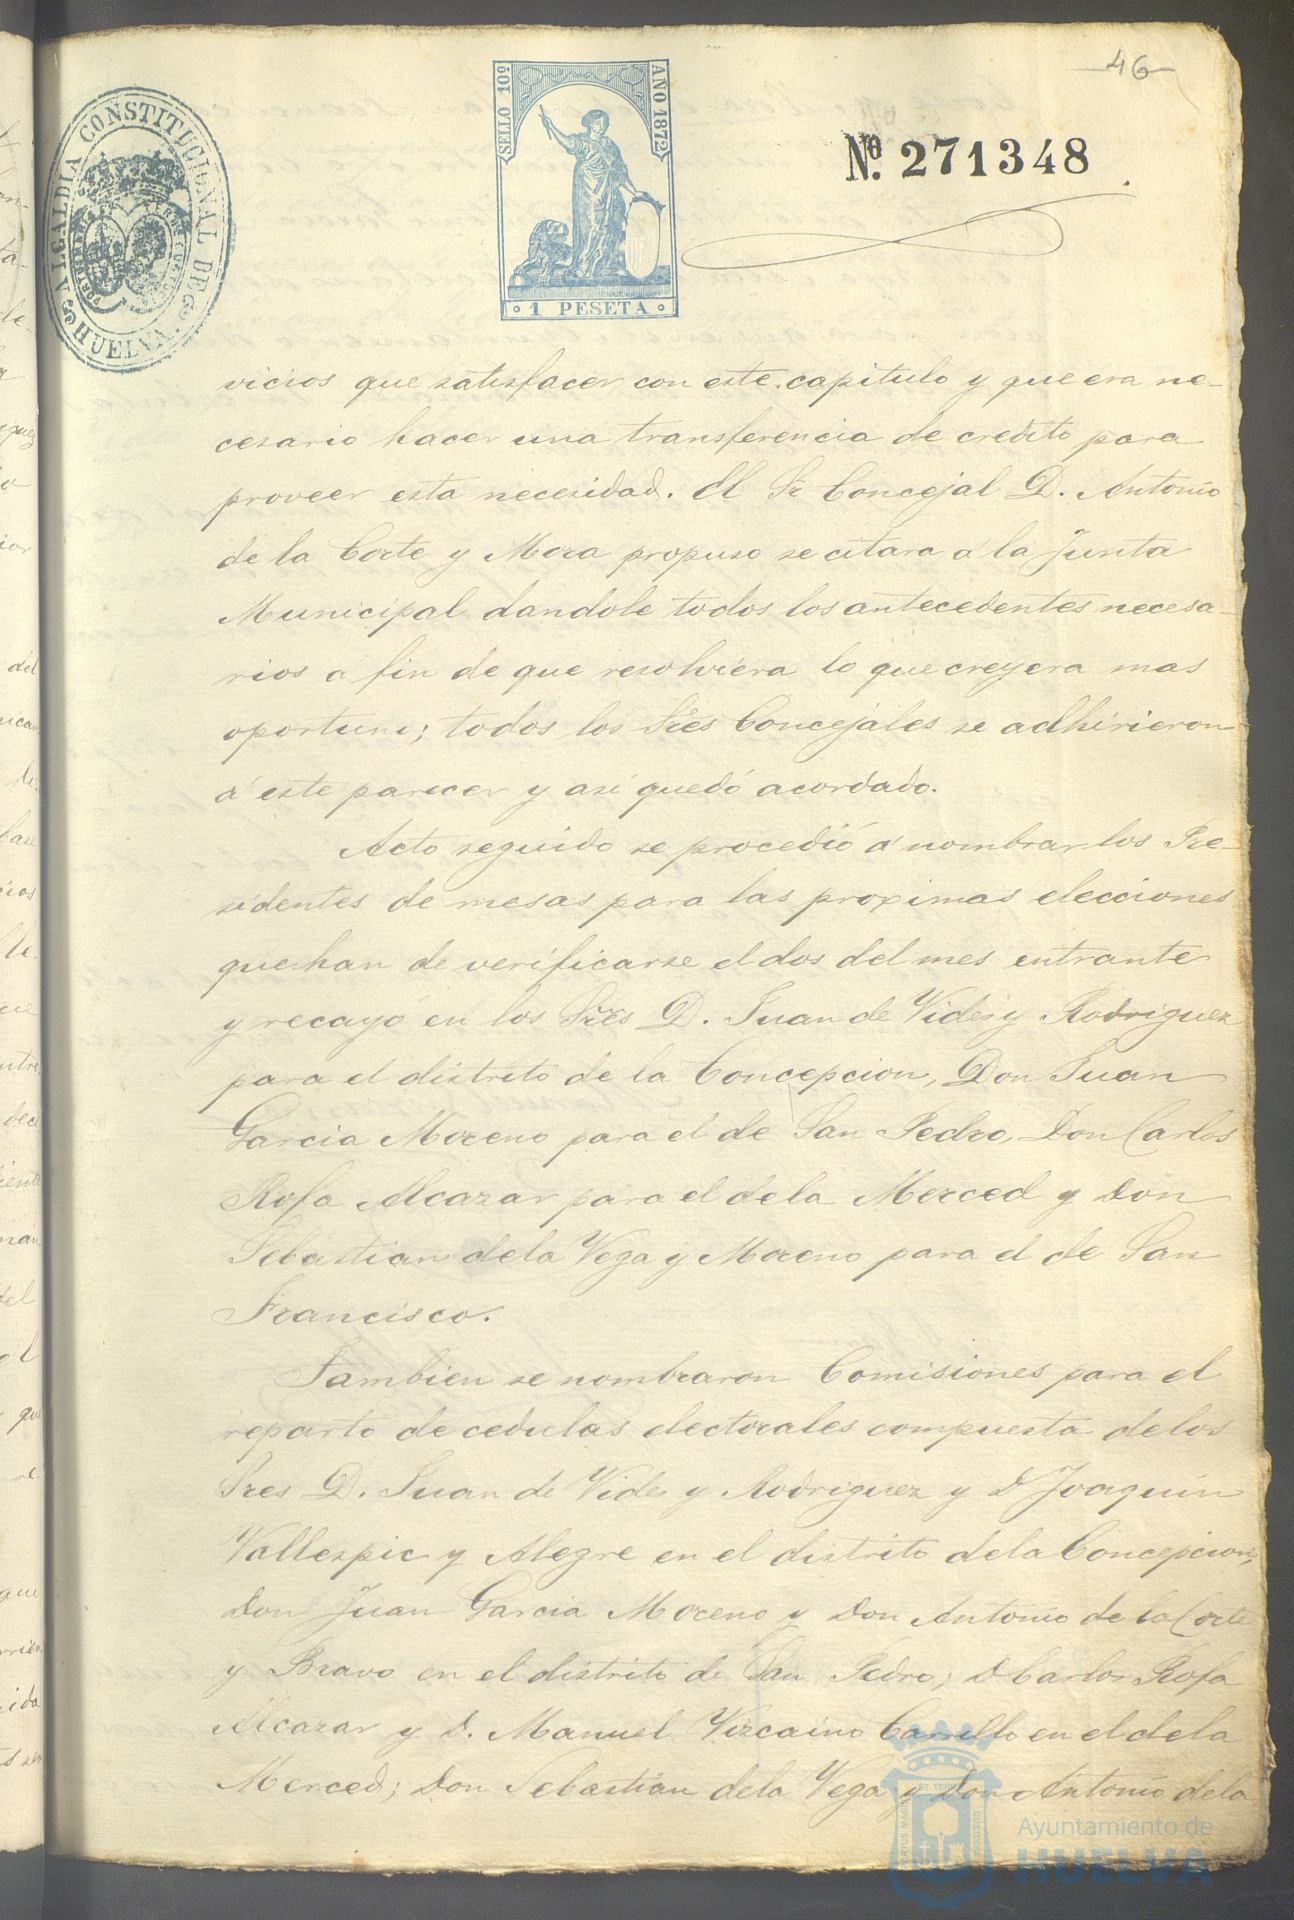 46
SELLO 10º
AÑO 1872
1 PESETA
Nº. 271348
ALCALDIA CONSTITUCIONAL DE HUELVA.
vicios que satisfacer con este capitulo y que era ne-
cesario hacer una transferencia de credito para
proveer esta necesidad. El Sr Concejal D. Antonio
de la Corte y Mora propuso se citara á la Junta
Municipal dandole todos los antecedentes necesa-
rios a fin de que resolviera lo que creyera mas
oportuno; todos los Sres Concejales se adhirieron
á este parecer y asi quedó acordado.
Acto seguido se procedió á nombrar los Pre-
sidentes de mesas para las proximas elecciones
que han de verificarse el dos del mes entrante
y recayó en los Sres D. Juan de Vides y Rodriguez
para el distrito de la Concepcion, Don Juan
Garcia Moreno para el de San Pedro, Don Carlos
Rofa Alcazar para el de la Merced y Don
Sebastian de la Vega y Moreno para el de San
Francisco.
Tambien se nombraron Comisiones para el
reparto de cedulas electorales compuesta de los
Sres D. Juan de Vides y Rodriguez y D Joaquin
Vallespir y Alegre en el distrito de la Concepcion,
Don Juan Garcia Moreno y Don Antonio de la Corte
y Bravo en el distrito de San Pedro; D Carlos Rofa
Alcazar y D. Manuel Vizcaino Carrillo en el de la
Merced; Don Sebastián de la Vega y Don Antonio de la
Ayuntamiento de
HUELVA